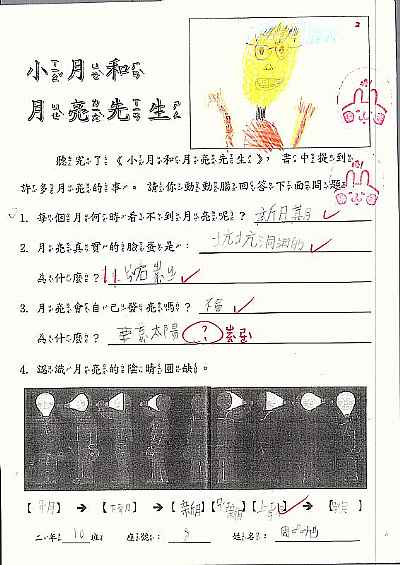 2
小月和
月亮先生
聽完了《小月和月亮先生》,書中提到
許多月亮的事。請你動動腦回答下面問題
1. 每個月何時看不到月亮呢?新月期
2. 月亮真實的臉蛋是:坑坑洞洞的
為什麼?
3. 月亮會自己發亮嗎?不會
為什麼?要靠太陽(?)
4. 認識月亮的陰晴圓缺。
【 】→【下弦月】→【新月】【 】【 】→【 】
二年10班 座號:8 姓名: